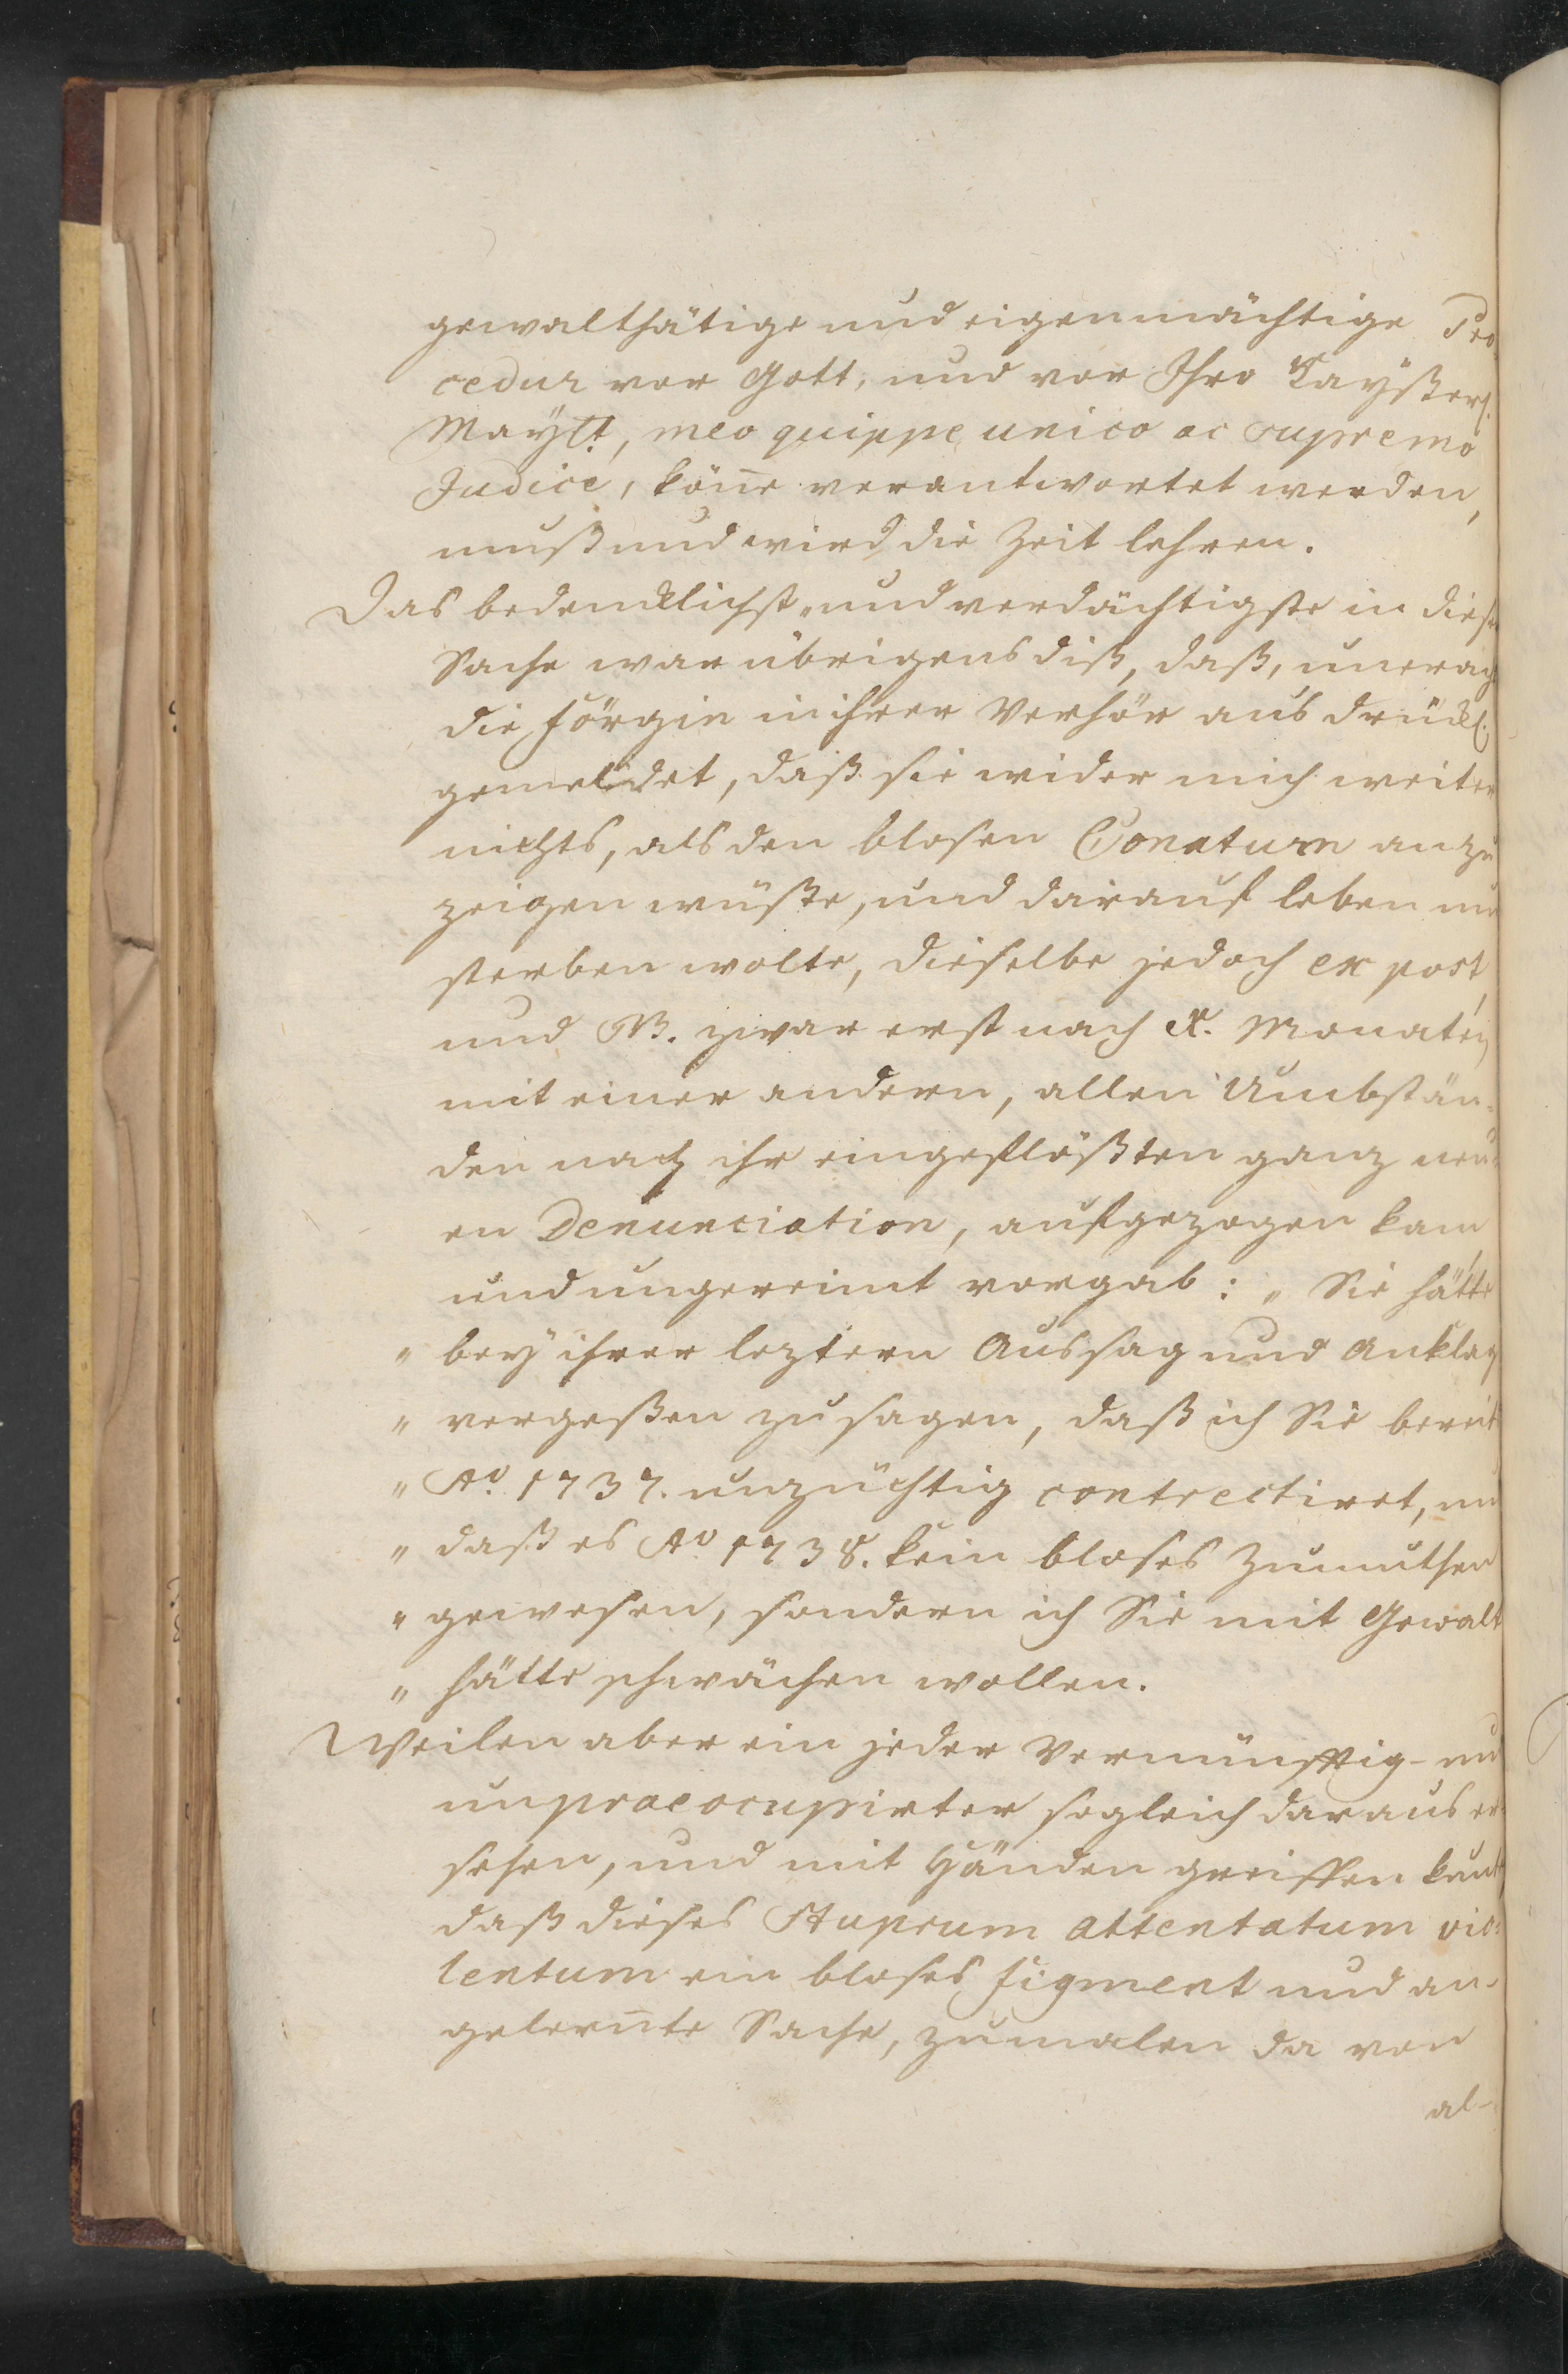 gewaltthätige und eigenmächtige Pro-
cedur vor Gott, und vor Ihro Kayßerl.
Mayʳᵗ., meo quippe unico ac supremo
Judice, köñe verantwortet werden,
muß und wird die Zeit lehren.
Das bedencklichst- und verdächtigste in dieser
Sache war übrigens diß, daß, unerach
die Jörgin in ihrer Verhör ausdrückl.
gemeldet, daß sie wider mich weiter
nichts, als den blosen Conatum anzu
zeigen wüßte, und darauf leben und
sterben wolte, dieselbe jedoch ex post,
und NB. zwar erst nach X. Monaten
mit einer andern, allen Umbstän-
den nach ihr eingeflößten ganz neu-
en Denunciation, aufgezogen kam
und ungereimt vorgab: „ Sie hätte
„ bey ihrer leztern Aussag und Anklag
„ vergeßen zu sagen, daß ich Sie bereit
„ Aº. 1737. unzüchtig contrectiret, und
„ daß es Aº 1738. kein bloses Zumuthen
„ gewesen, sondern ich Sie mit Gewalt
„ hätte schwächen wollen.
Weilen aber ein jeder Vernünfftig- und
unpraeocupirter sogleich daraus er-
sehen, und mit Händen greiffen kunt,
daß dieses Stuprum attentatum vio-
lentum ein bloses figment und an-
gelernte Sache, zumalen da von
al-